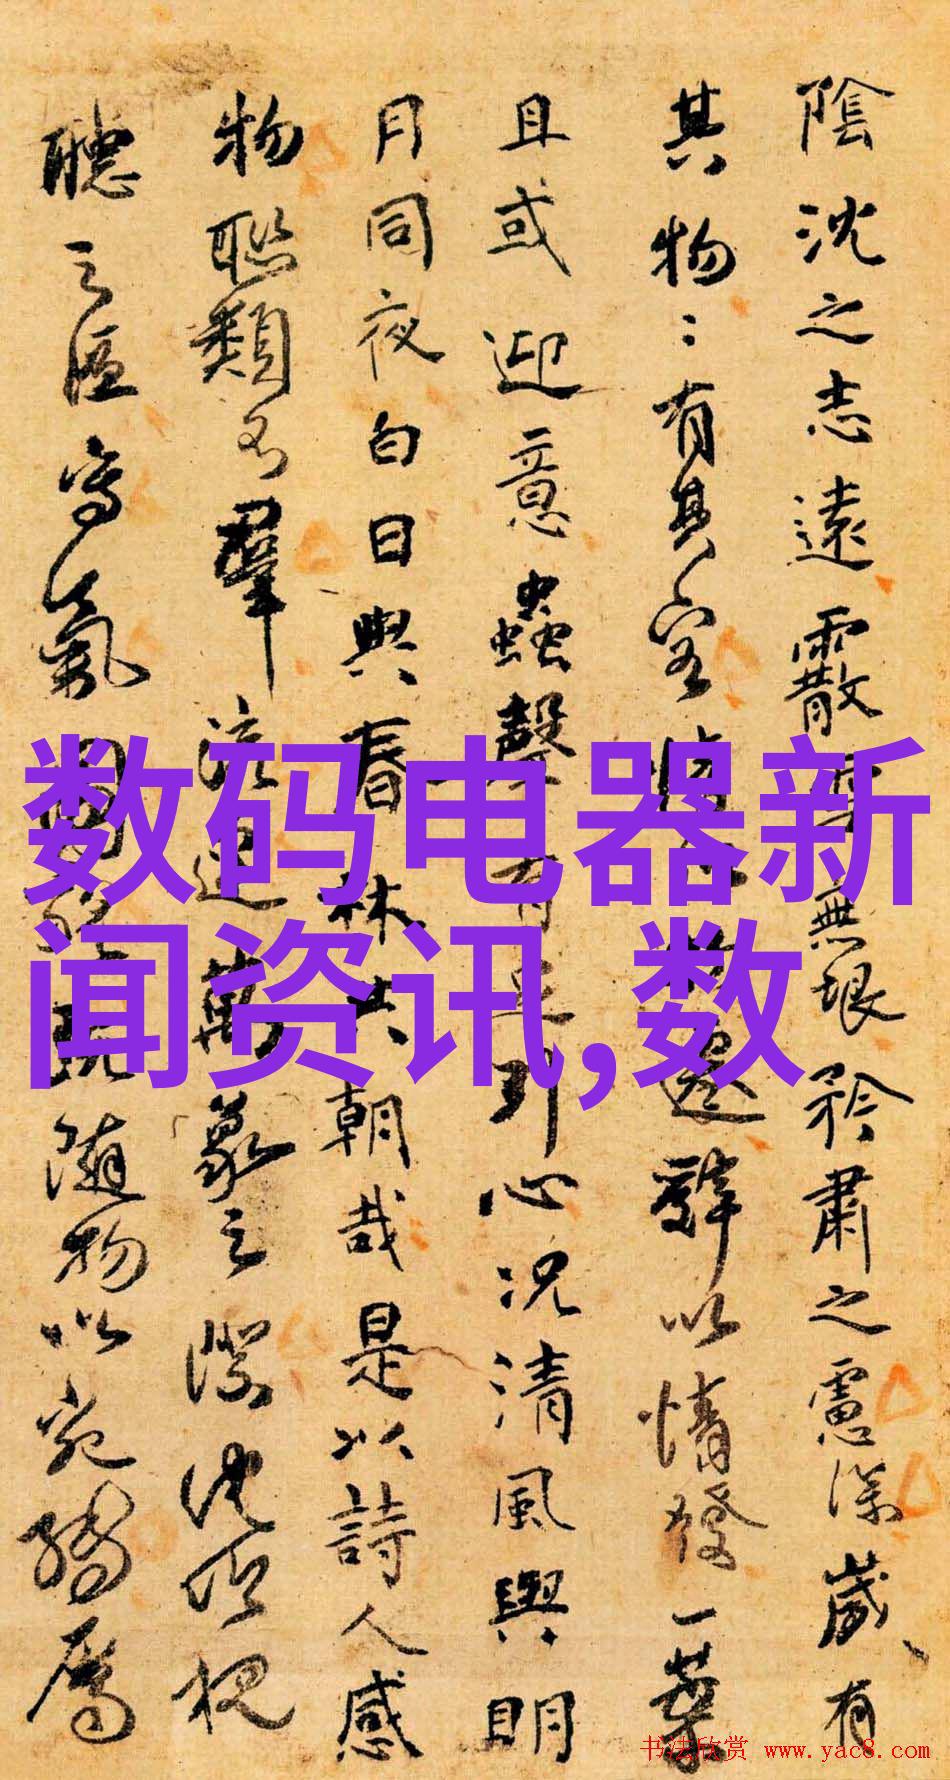 陰沈之志遠霰雪無垠矜肅之慮深歲有
其物〻有其容情以物遷辭以情發一葉
且或迎意蟲聲有足引心況清風與明
月同夜白日與春林共朝哉是以詩人感
物聯類不羣流連萬象之際沈吟視
聽之區寫氣圖貌既隨物以宛轉屬
数码电器新
闻资讯,数
书法欣赏 www.yac8.com